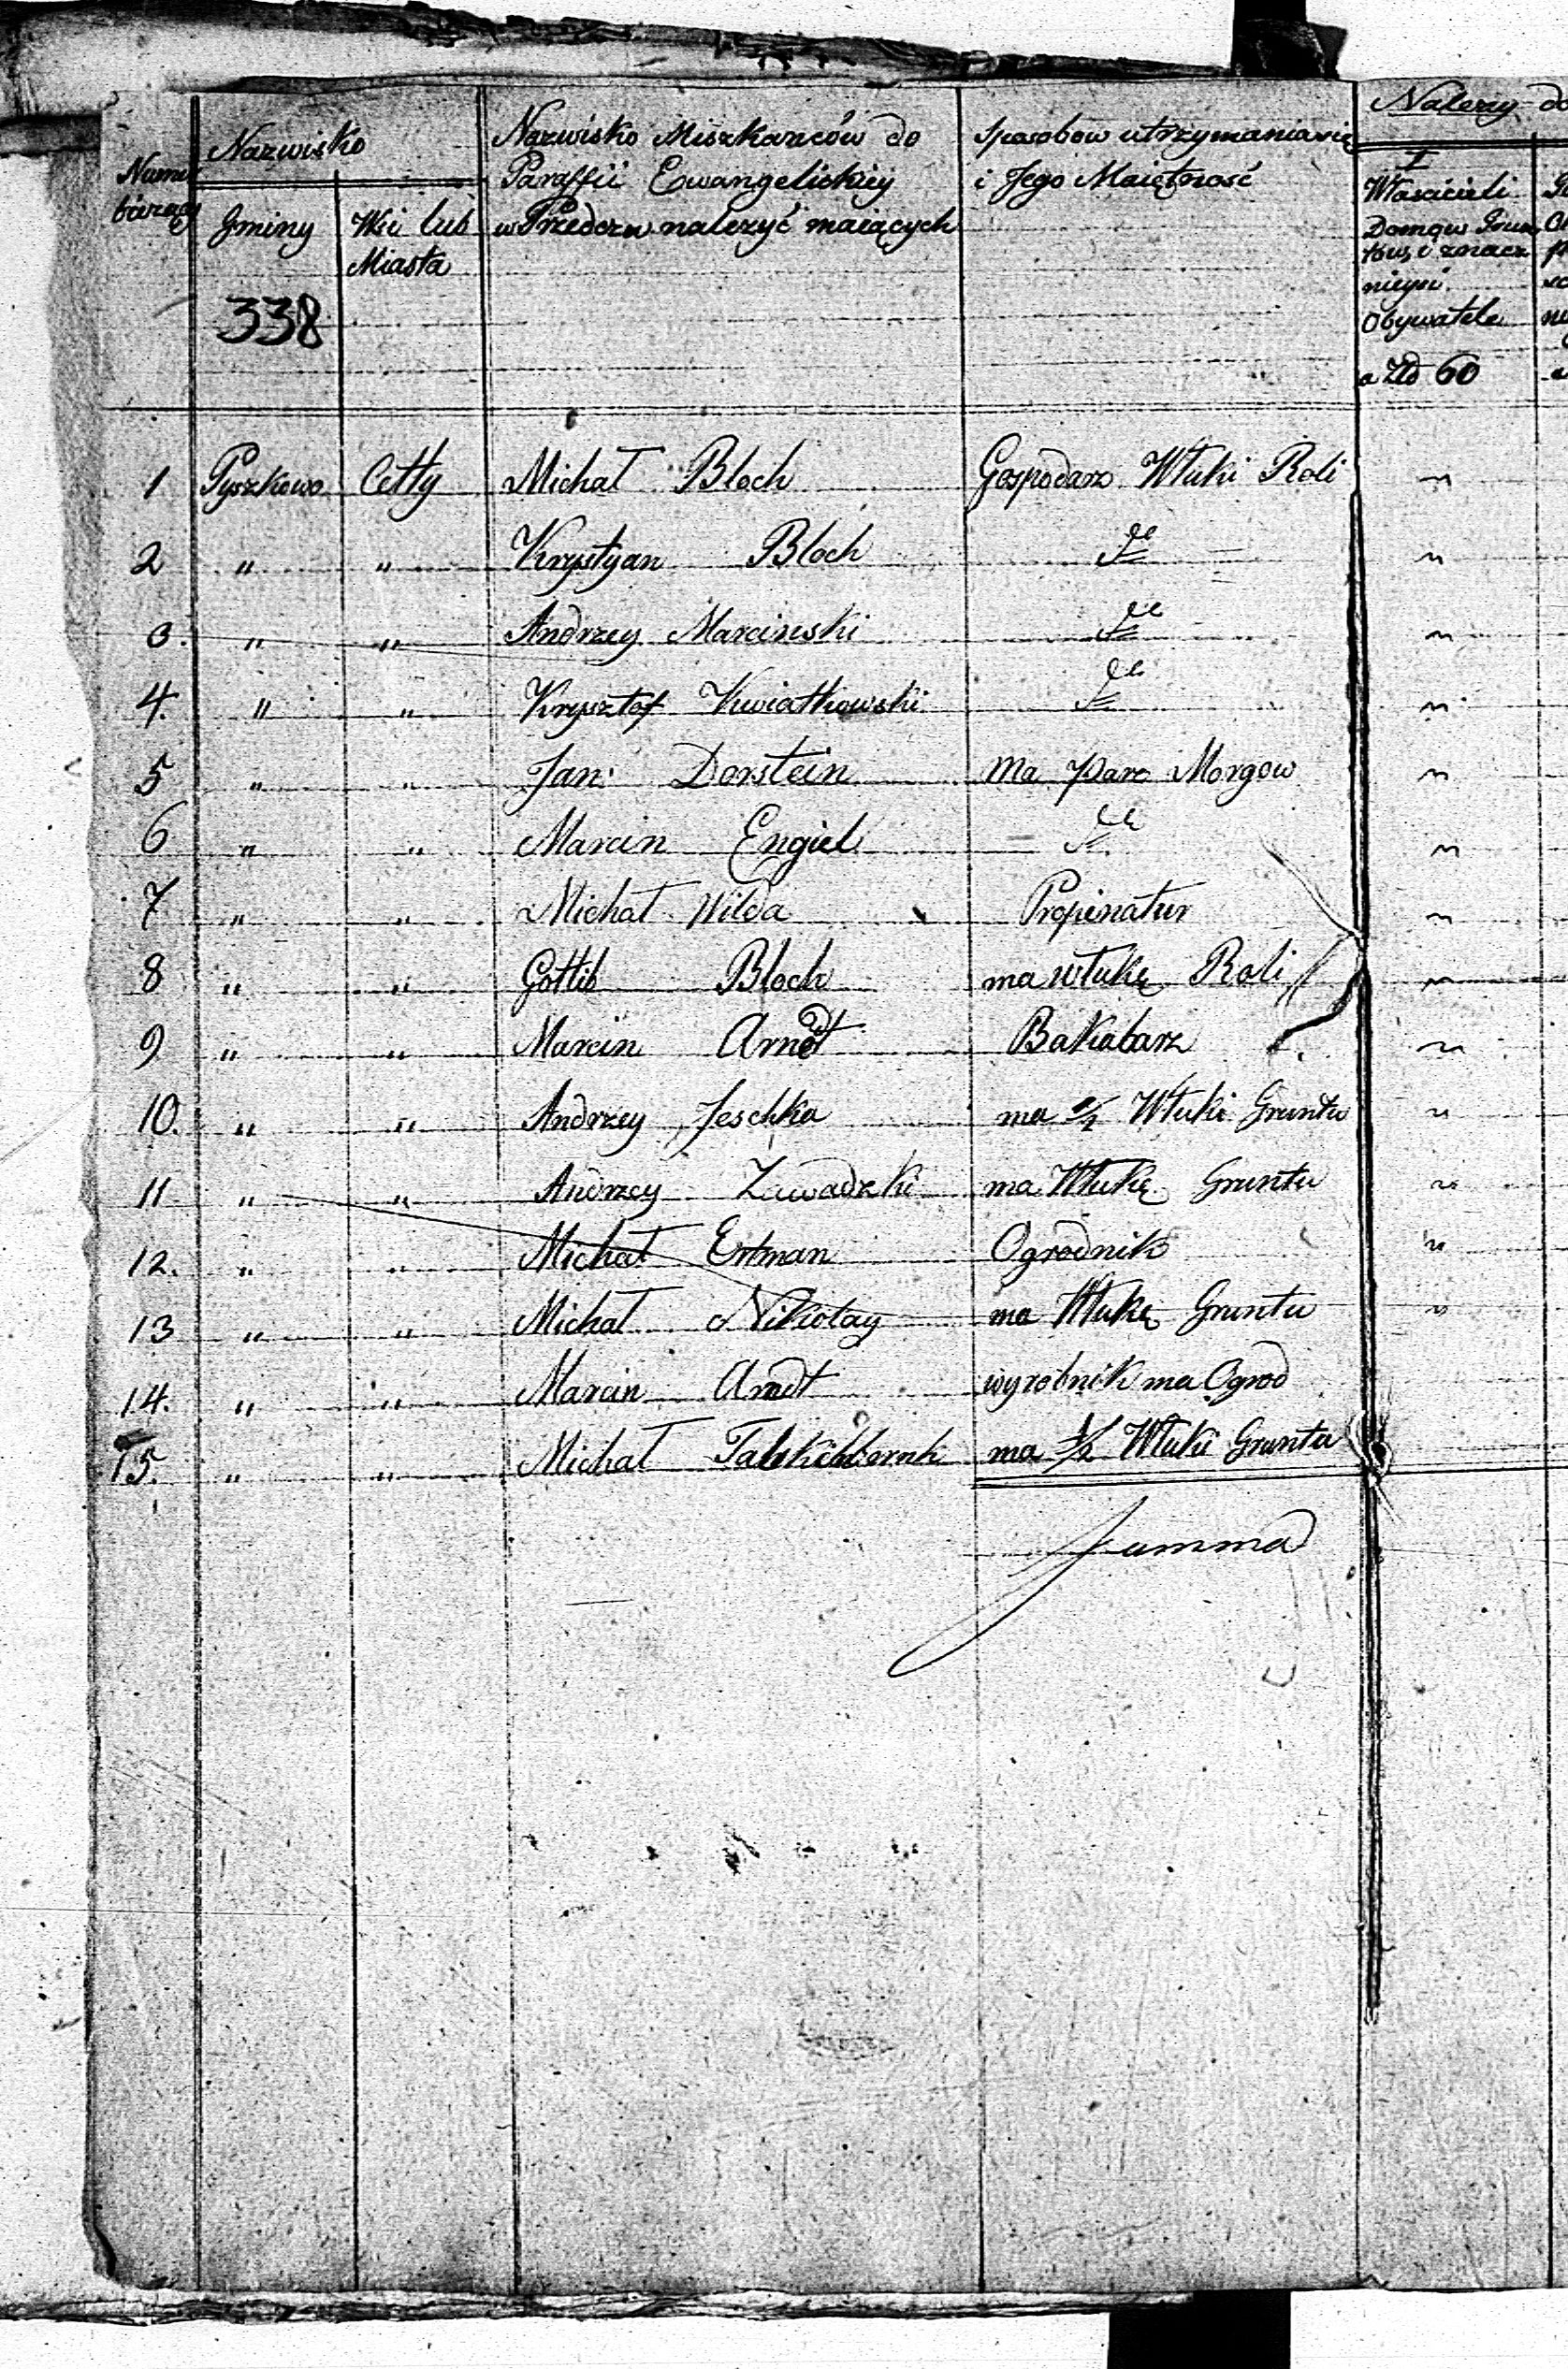 Nazwisko
Numer bieżący
Gminy
Wsi lub
Miasta
Nazwisko Miszkańców do
Paraffii Ewangelickiey
w Przedczu należyć maiących
Sposobow utrzymania się
i Jego Maiętność
Należy do
I
Właścicieli
Domow Grun
tow, i znacz
nieysi
Obywatele
a Złd 60
338
1 Pyszkowo Cetty Michał Bloch Gospodarz Włuki Roli ~
2 " " Krystyan Bloch ~
3. " " Andrzey Marcinski ~
4. " " Krysztof Kwiatkowski ~
5 " " Jan Dorstein Ma pare Morgow ~
6 " " Marcin Engiel ~
7 " " Michał Wilda Propinatur ~
8 " " Gottlib Bloch ma włukę Roli ~
9 " " Marcin Arndt Bakałarz ~
10. " " Andrzey Jeschka ma ½ Włuki Gruntu ~
11 " " Andrzey Zawadzki ma Włukę Gruntu ~
12. " " Michał Ertman Ogrodnik ~
13 " " Michał Nikolay ma Włukę Gruntu ~
14. " " Marcin Arndt wyrobnik ma Ogrod
15. " " Michał ma ½ Włuki Gruntu
Summa